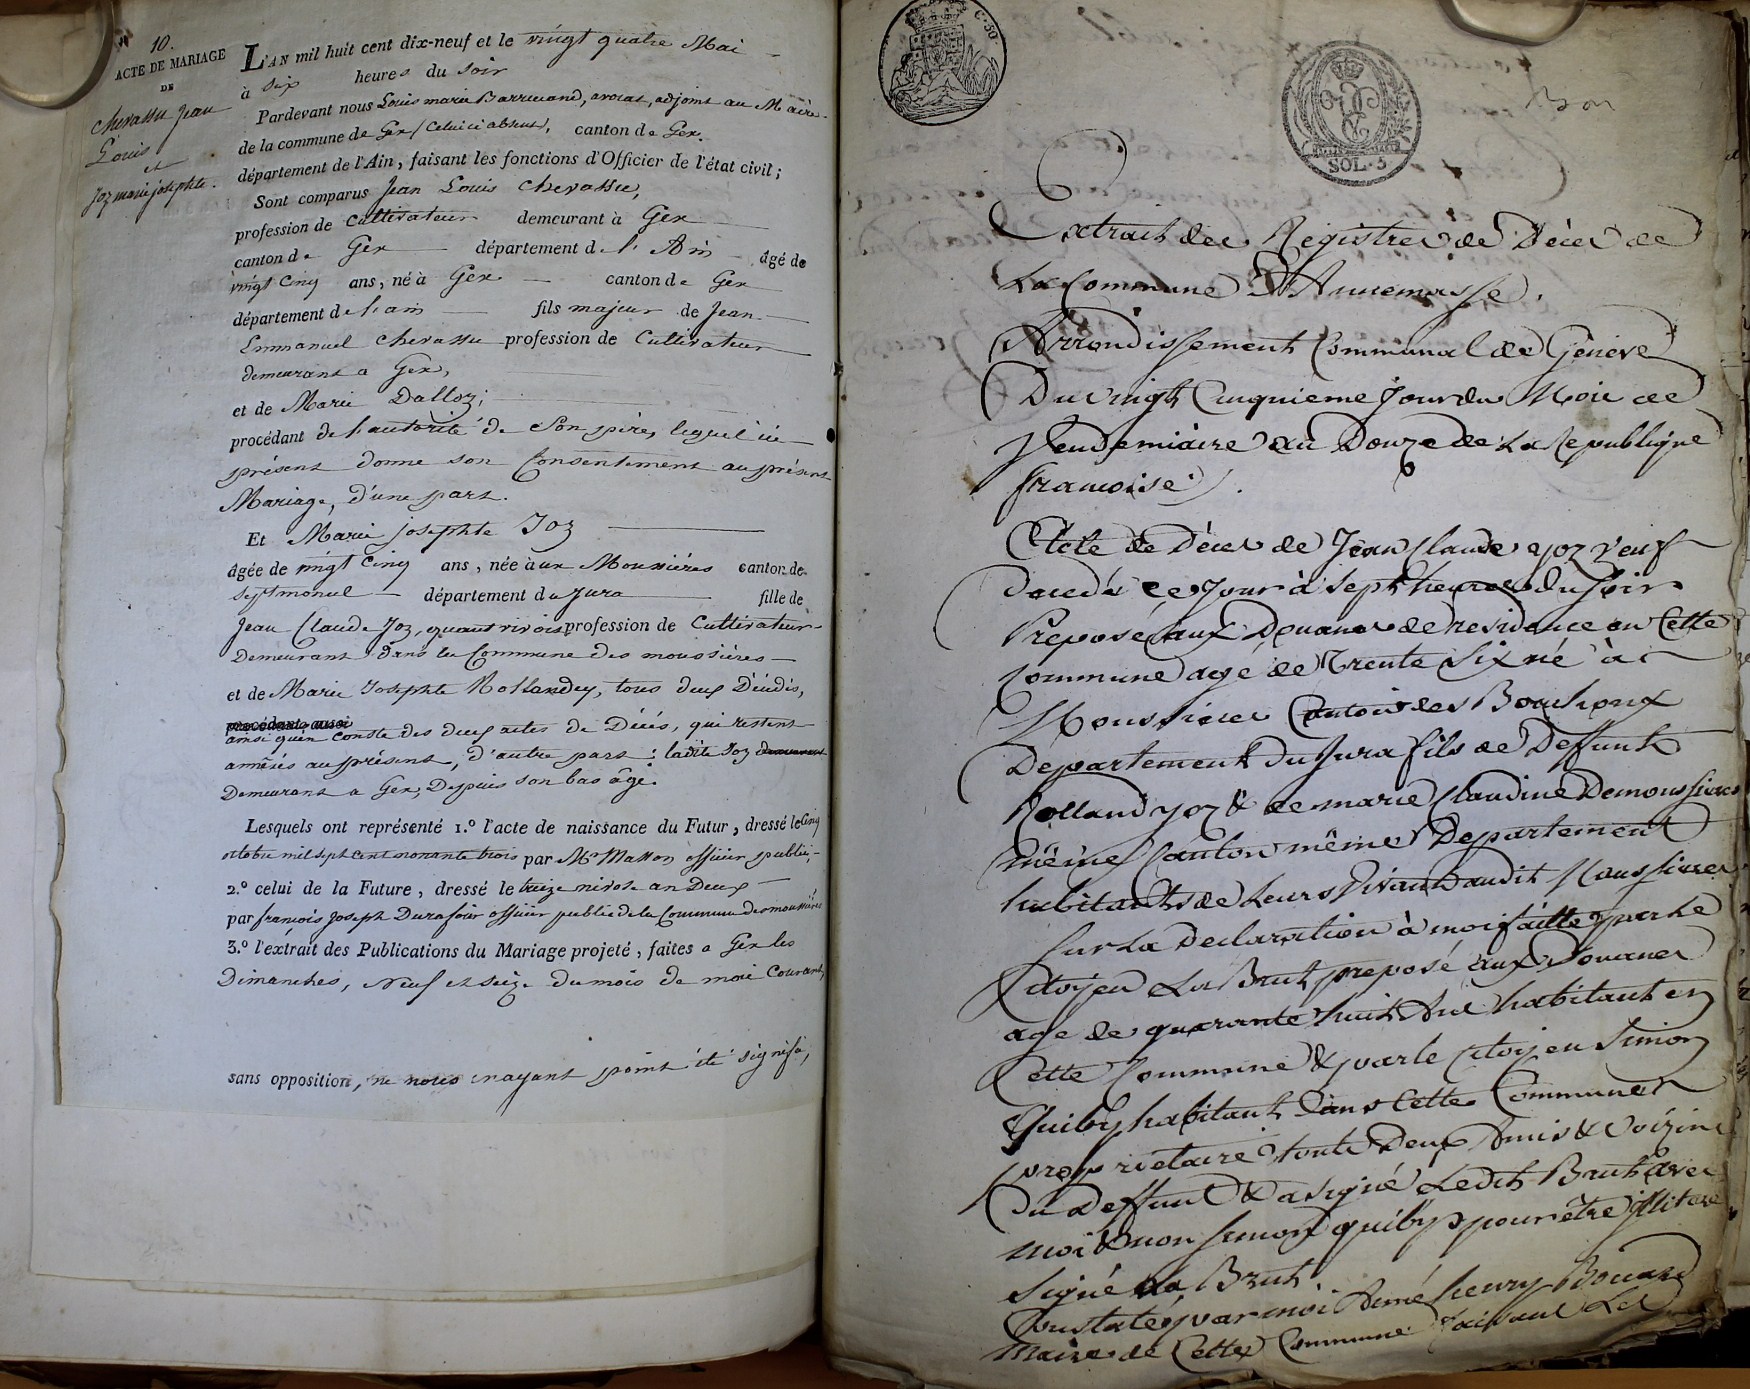 N° 10.
ACTE DE MARIAGE
DE
Chevassu Jean
Louis
et
Joz marie josephte.
L'AN mil huit cent dix-neuf et le vingt quatre Mai
à six heures du soir
Pardevant nous Louis marie Barruand, avocat, adjoint au Maire
de la commune de Gex (celui ci absent), canton de Gex.
département de l'Ain, faisant les fonctions d'Officier de l'état civil;
Sont comparus Jean Louis Chevassu,
profession de Cultivateur demeurant à Gex
canton de Gex département de l'Ain âgé de
vingt cinq ans, né à Gex canton de Gex
département de l'ain fils majeur de Jean
Emmanuel Chevassu profession de Cultivateur
demeurant a Gex,
et de Marie Dalloz;
procédant de l'autorité de son père, lequel ici
présent donne son Consentement au présent
Mariage, d'une part.
Et Marie josephte Joz
âgée de vingt cinq ans, née à ux Moussières canton de
Septmoncel département du Jura fille de
Jean Claude Joz, quant vivois profession de Cultivateur
Demeurant dans la Commune des moussières
et de Marie Josephte Rollandez, tous deux Décédés,
procédant aussi
ainsi qu'en conste des deux actes de Décés, qui restent
annéxés au présent, d'autre part: ladite Joz demeurant
Demeurant a Gex, Depuis son bas âge.
Lesquels ont représenté 1.° l'acte de naissance du Futur, dressé le Cinq
octobre mil sept cent nonante trois par Mr Masson officier public,
2.° celui de la Future, dressé le treize nivose an Deux
par françois Joseph Durafour officier public de la Commune des moussières
3.° l'extrait des Publications du Mariage projeté, faites a Gex les
Dimanches, neuf et seize du mois de mai Courant,
sans opposition, ne nous en ayant point été signifié,
C. 30
SOL. 5
Extrait des Registres de Décès de
La Commune D'Annemasse.
Arrondissement Communal de Genève
Du vingt Cinquieme jour du Mois de
Vendemiaire an Douze de La Republique
françoise.
Acte de Décès de Jean Claude Yoz veuf
Decedé ce jour à sept heures du soir
Preposé aux Douanes de residence en Cette
Commune agé de Trente Six né à
Moussieres Canton des Bouchoux
Departement du Jura fils de Deffunt
Rolland Yoz & de marie Claudine Demoussieres
même Canton même Departement
habitants de Leurs Vivant audit Moussieres
Sur La Declaration à moi faitte par Le
Citoyen La Brut preposé aux Douanes
age de quarante huit Ans habitant en
Cette Commune & par le Citoyen Simon
Quiby habitant Dans Cette Commune
proprietaire touts Deux Amis & Voizins
Du Deffunt & a signé Ledit Brut avec
moi & non Simon Quiby pour être illitere
Signé La Brut.
Constaté par moi Aimé henry Bouard
Maire de Cette Commune faisant Les